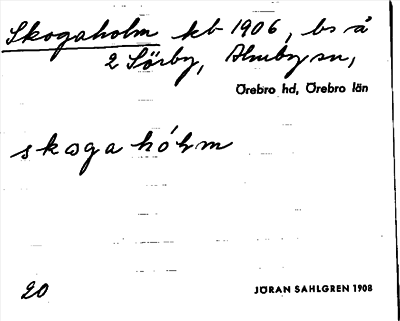 Skogaholm kb 1906, bs å
2 Sörby, Almby sn,
Örebro hd, Örebro län
skoga hól m
20
JÖRAN SAHLGREN 1908